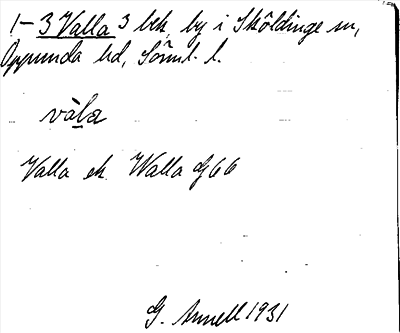 1–3 Valla 3 bek, by i Sköldinge sn,
Oppunda hd, Sörml. l.
vàla
Valla ek. Walla G66
G. Annell 1931